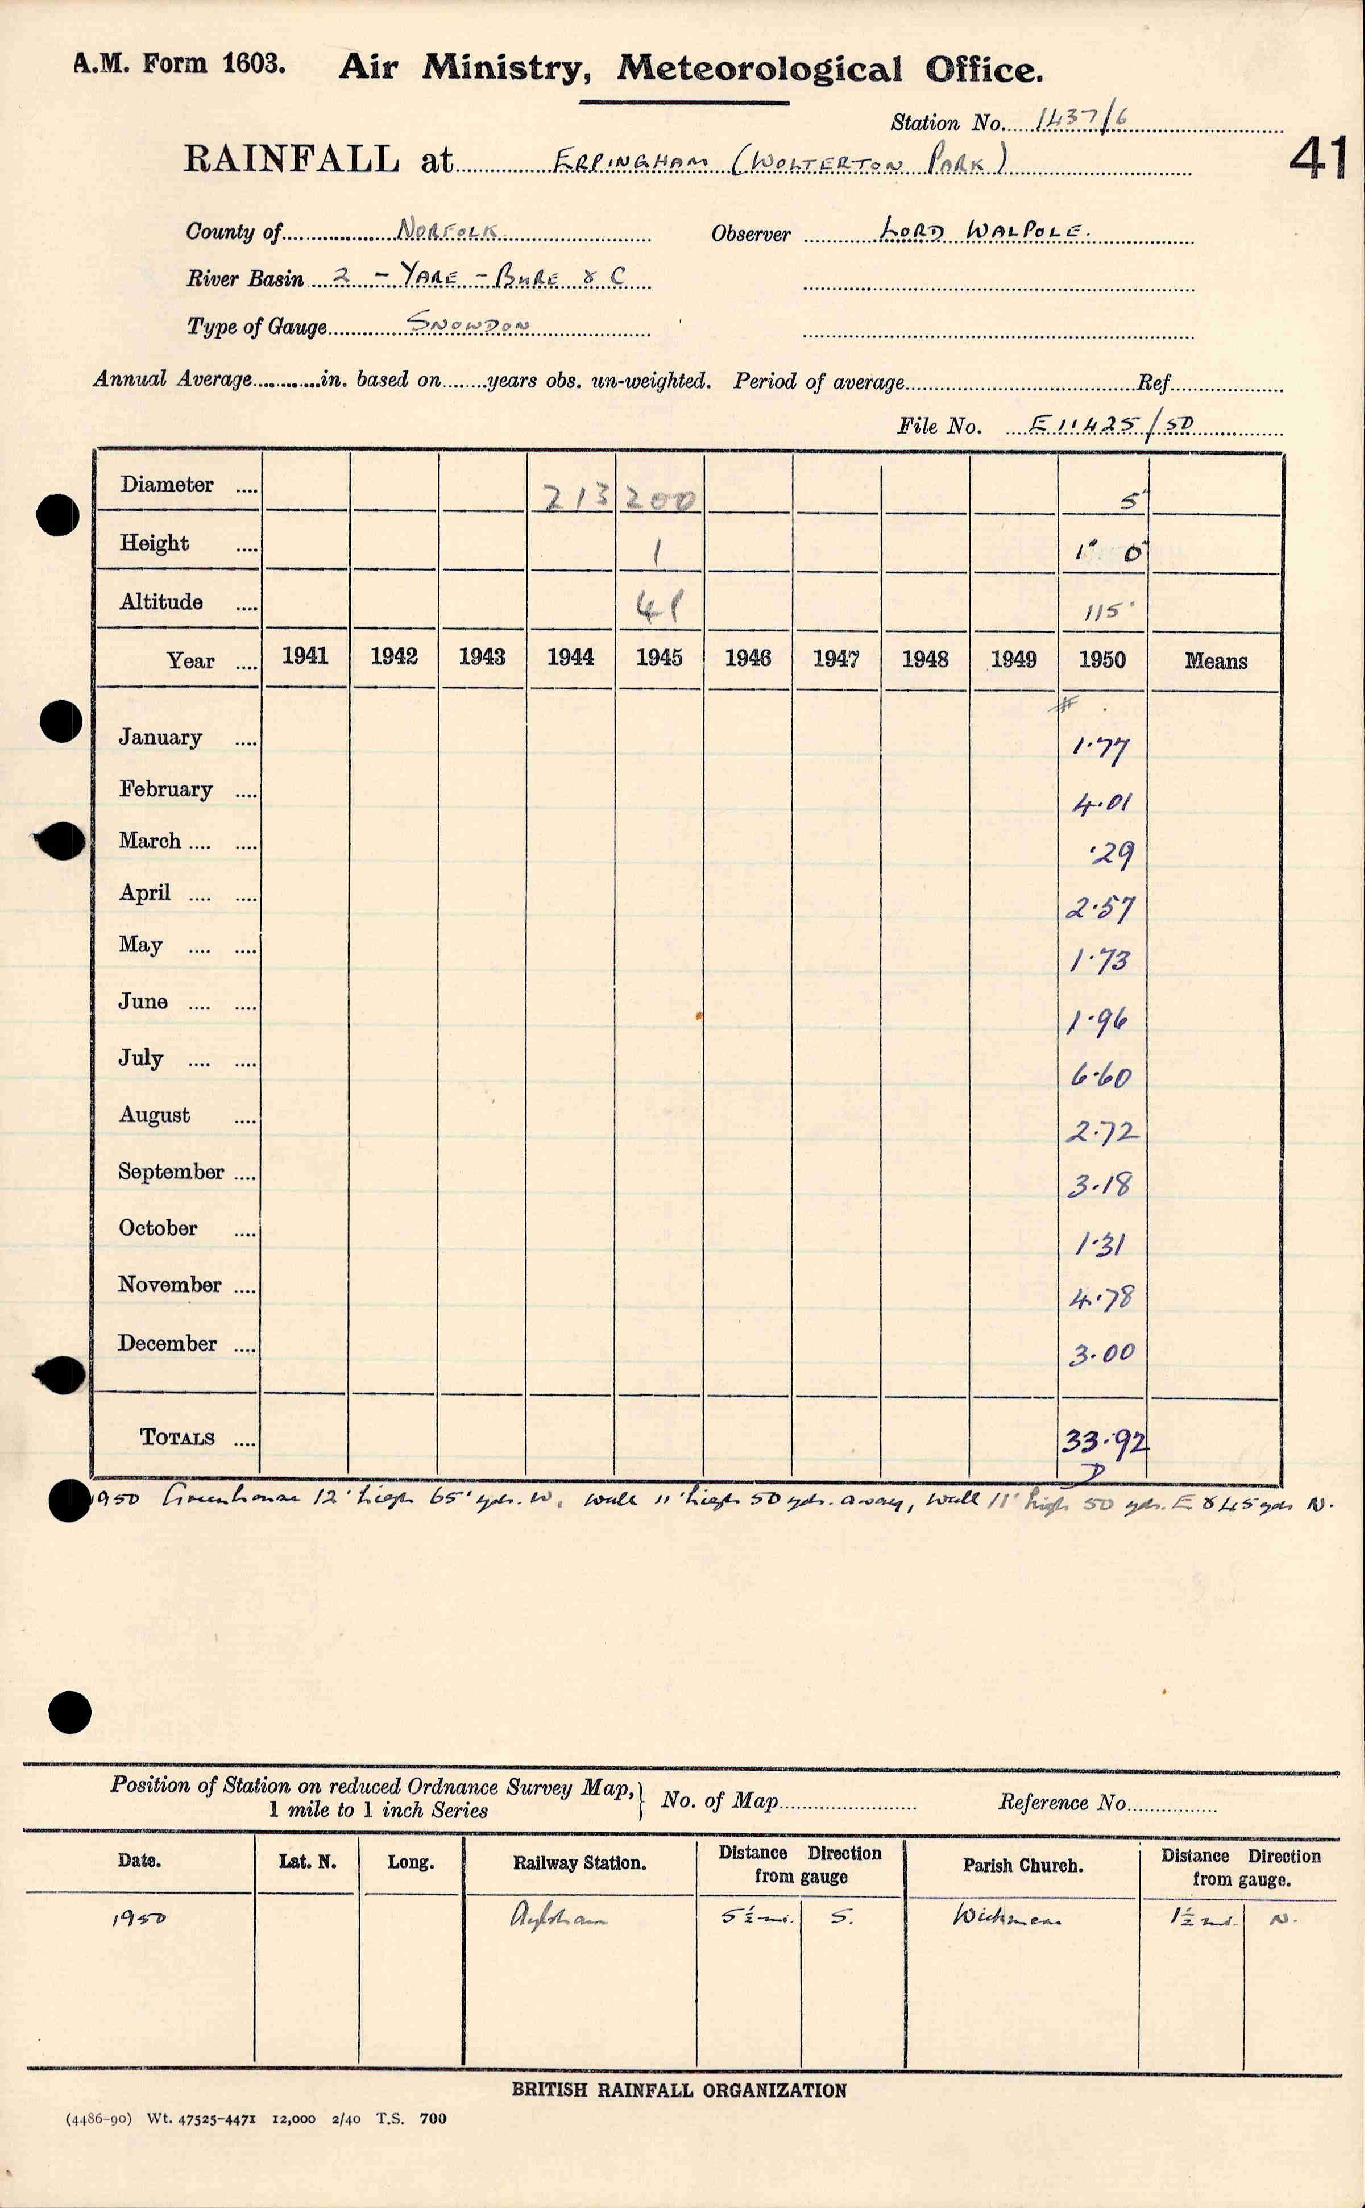 A.M. Form 1603. Air Ministry, Meteorological Office.
Station No. 1437/6
RAINFALL at ERPINGHAM (WOLTERTON PARK)
41
County of NORFOLK Observer LORD WALPOLE.
River Basin 2 - YARE - BURE & C
Type of Gauge SNOWDON
Annual Average in. based on years obs. un-weighted. Period of average Ref
File No. E 11425/50
Diameter .... 213 200 5"
Height .... 1 1' 0"
Altitude .... 41 115'
Year .... 1941 1942 1943 1944 1945 1946 1947 1948 1949 1950 Means
#
January .... 1.77
February .... 4.01
March .... .... .29
April .... .... 2.57
May .... .... 1.73
June .... .... 1.96
July .... .... 6.60
August .... 2.72
September .... 3.18
October .... 1.31
November .... 4.78
December .... 3.00
TOTALS .... 33.92
D
1950 Greenhouse 12' high 65' yds. W, wall 11' high 50 yds. away, wall 11' high 50 yds. E & 45 yds N.
Position of Station on reduced Ordnance Survey Map, } No. of Map Reference No.
1 mile to 1 inch Series
Date. Lat. N. Long. Railway Station. Distance Direction from gauge Parish Church. Distance Direction from gauge.
1950 Aylsham 5½ mi. S. Wickmere 1½ mi. N.
BRITISH RAINFALL ORGANIZATION
(4486-90) Wt. 47525-4471 12,000 2/40 T.S. 700